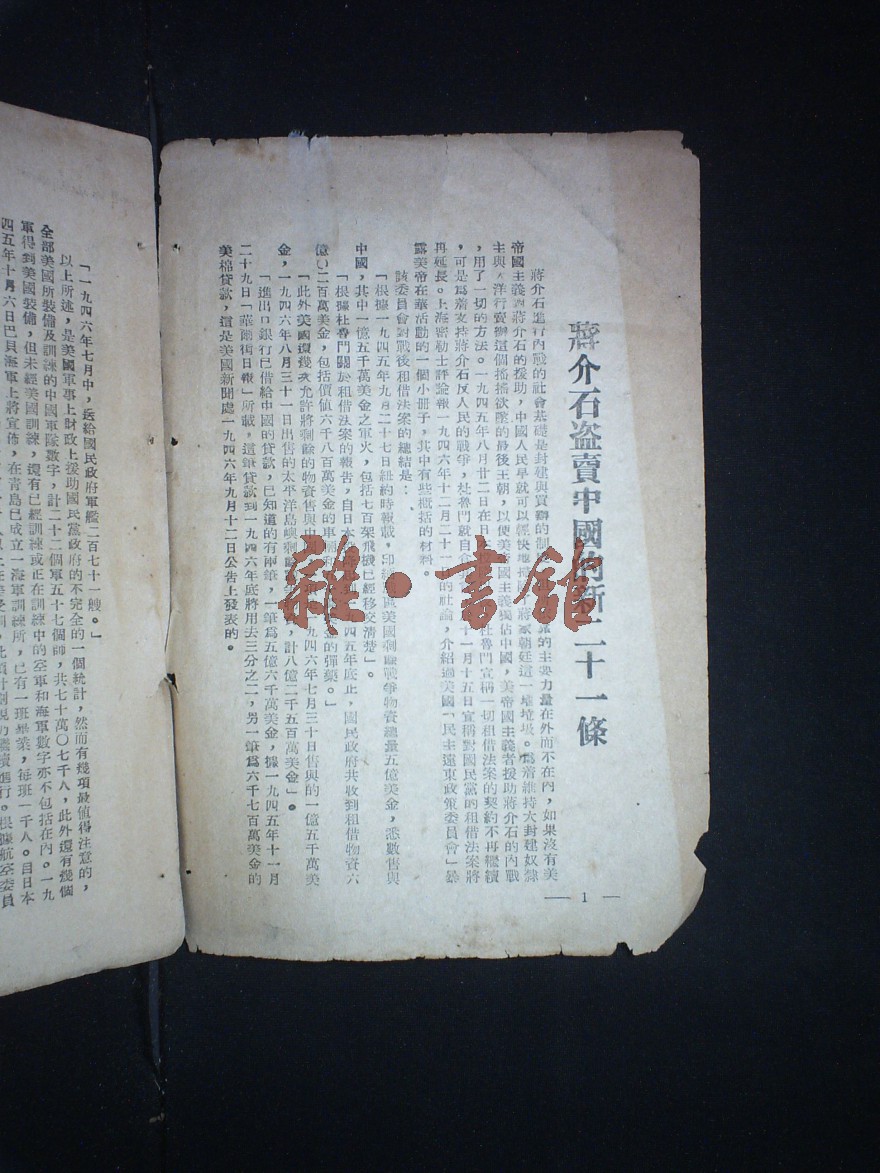 蔣介石盗賣中國的新二十一條
蔣介石進行內戰的社會基礎是封建與買辦的制 的主要力量在外而不在內,如果沒有美
帝國主義 蔣介石的援助,中國人民早就可以輕快地 蔣家朝廷這一堆垃圾。爲着維持大封建奴隸
主與大洋行買辦這個搖搖欲墜的最後王朝,以便美帝國主 獨佔中國,美帝國主義者援助蔣介石的內戰
,用了一切的方法。一九四五年八月廿二日在日 杜魯門宣稱一切租借法案的契約不再繼續
,可是爲着支持蔣介石反人民的戰爭,杜魯門就自食 十一月十五日宣稱對國民黨的租借法案將
再延長。上海密勒士評論報一九四六年十二月二十一 的社論,介紹過美國「民主遠東政策委員會」暴
露美帝在華活動的一個小册子,其中有些概括的材料。
該委員會對戰後租借法案的總結是:
「根據一九四五年九月二十七日紐約時報載,印 美國剩餘戰爭物資總量五億美金,悉數售與
中國,其中一億五千萬美金之軍火,包括七百架飛機已經移交清楚」。
「根據杜魯門關於租借法案的報告,自日本 到 四五年底止,國民政府共收到租借物資六
億〇二百萬美金,包括價值六千八百萬美金的車輛 金的彈藥。」
「此外美國還幾次允許將剩餘的物資售與中國 一九四六年七月三十日售與的一億五千萬美
金,一九四六年八月三十一日出售的太平洋島嶼剩餘 ,計八億二千五百萬美金」。
「進出口銀行已借給中國的貸款,已知道的有兩筆,一筆爲五億六千萬美金,據一九四五年十一月
二十九日「華爾街日報」所載,這筆貸款到一九四六年底將用去三分之二,另一筆爲六千七百萬美金的
美棉貸款,這是美國新聞處一九四六年九月十二日公告上發表的。
— 1 —
「一九四六年七月中,送給國民政府軍艦二百七十一艘。」
以上所述,是美國軍事上財政上援助國民黨政府的不完全的一個統計,然而有幾項最值得注意的,
全部美國所裝備及訓練的中國軍隊數字,計二十二個軍五十七個師,共七十萬〇七千人,此外還有幾個
軍得到美國裝備,但未經美國訓練,還有已經訓練或正在訓練中的空軍和海軍數字亦不包括在內。一九
四五年十月六日巴貝海軍上將宣佈,在青島已成立一海軍訓練所,已有一班畢業,每班一千人。自日本
雜·書舘